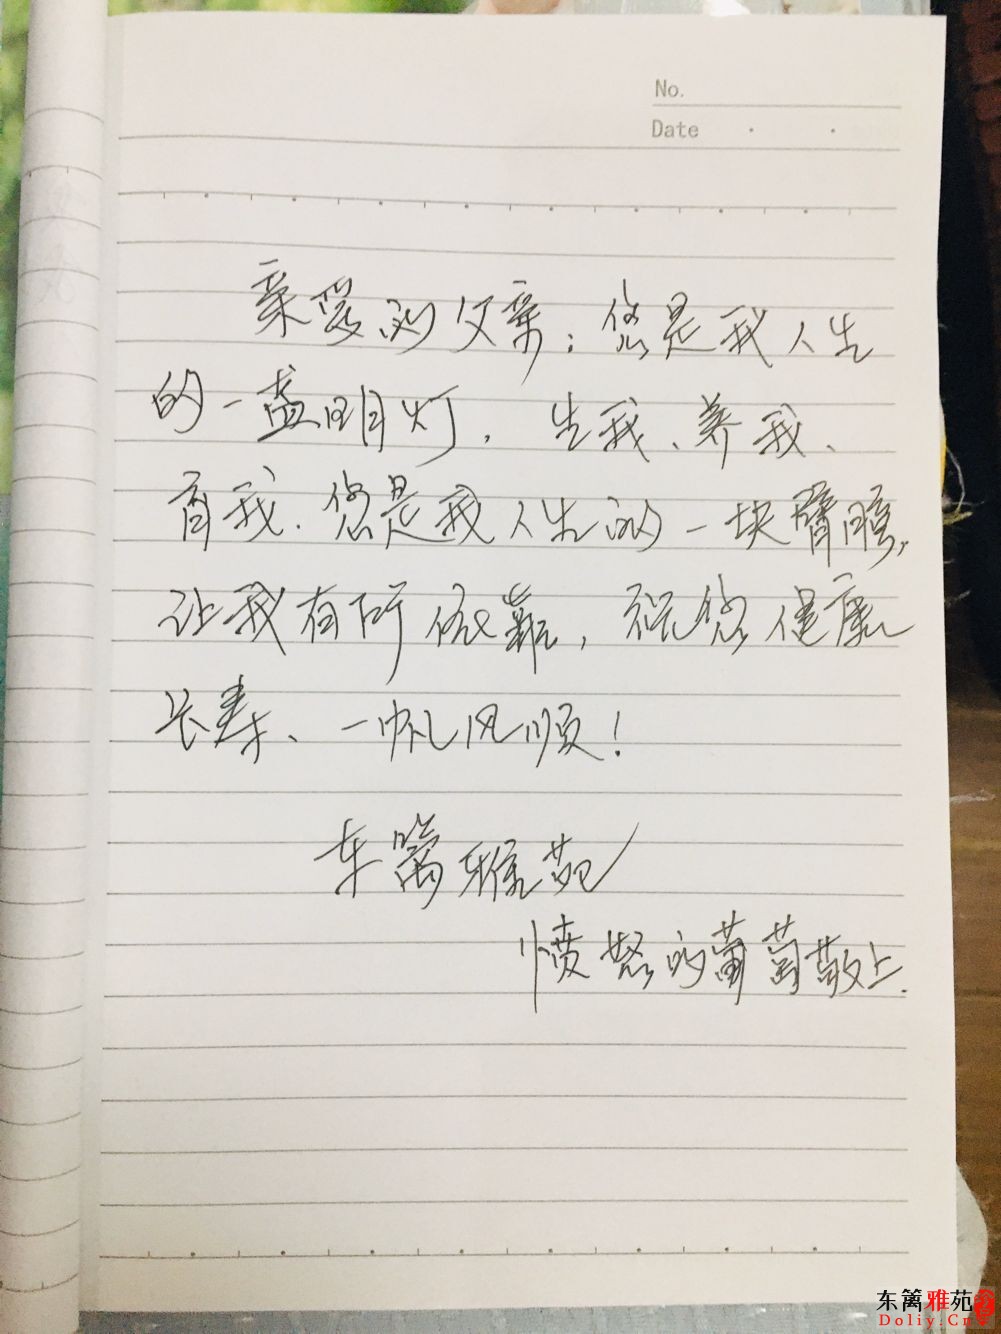 No.
Date
亲爱的父亲：您是我人生
的一盏明灯，生我、养我、
育我．您是我人生的一块臂膀，
让我有所依靠，祝您健康
长寿、一帆风顺！
东篱雅苑
愤怒的葡萄敬上．
东篱雅苑
Doliy.Cn